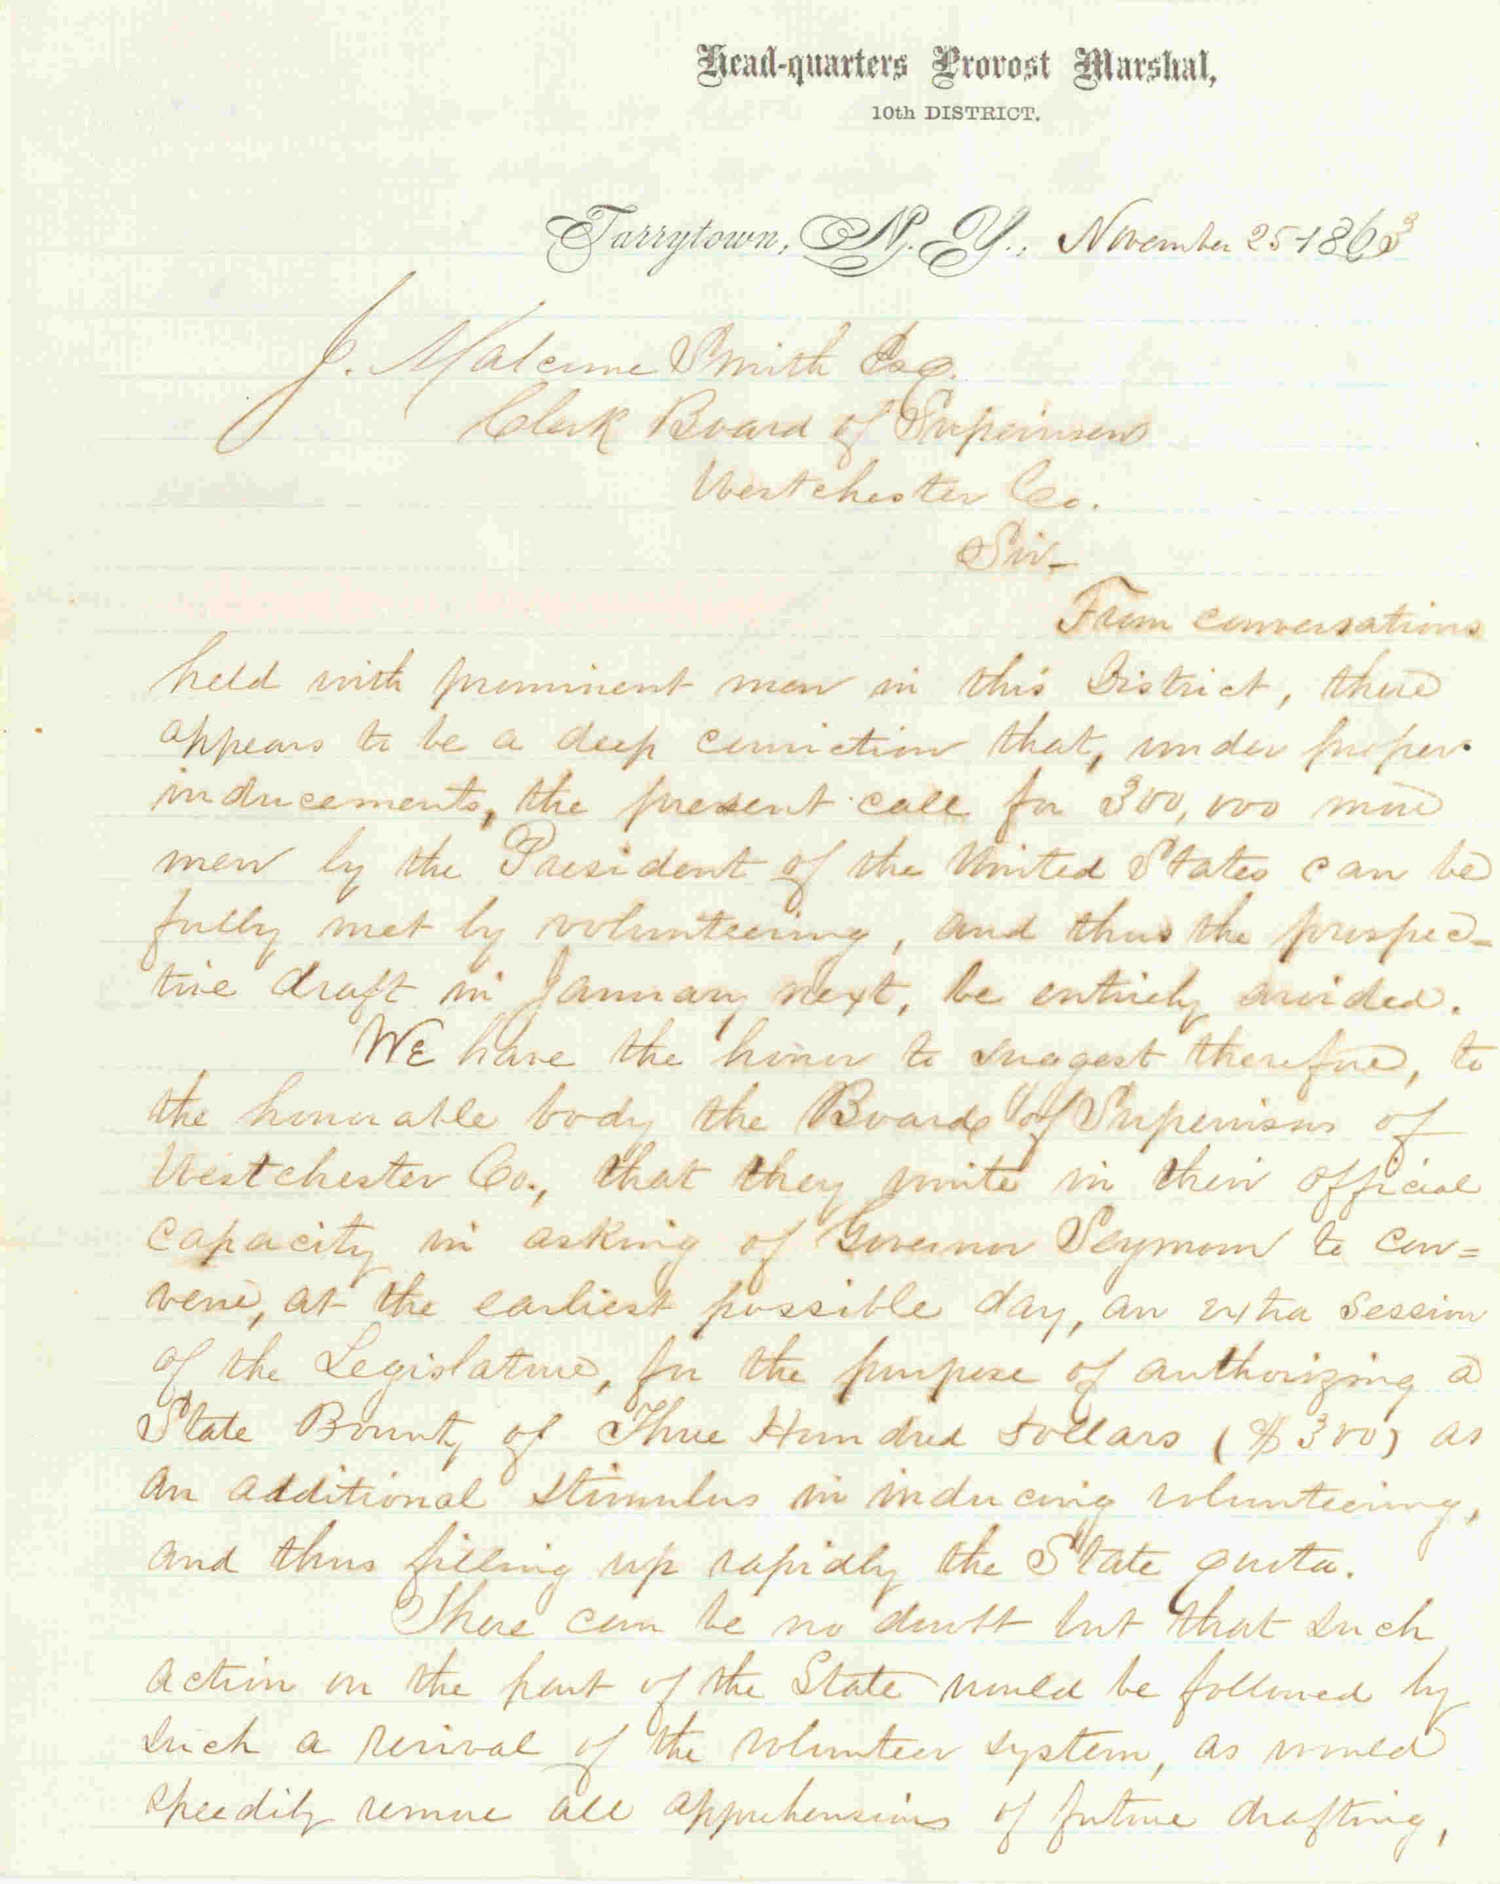 Head-quarters Provost Marshal,
10th DISTRICT.
Tarrytown, N. Y., November 25 1863
J. Malcome Smith Esq.
Clerk Board of Supervisors
Westchester Co.
Sir-
From conversations
held with prominent men in this District, there
appears to be a deep conviction that, under proper
inducements, the present call for 300,000 more
men by the President of the United States can be
fully met by volunteering, and thus the prospec-
tive draft in January next, be entirely avoided.
We have the honor to suggest therefore, to
the honorable body the Board of Supervisors of
Westchester Co., that they unite in their official
capacity in asking of Governor Seymour to con=
vene, at the earliest possible day, an extra session
of the Legislature, for the purpose of authorizing a
State Bounty of Three Hundred dollars ($300) as
an additional stimulus in inducing volunteering,
and thus filling up rapidly the State quota.
There can be no doubt but that such
action on the part of the State would be followed by
such a revival of the volunteer system, as would
speedily remove all apprehensions of future drafting,